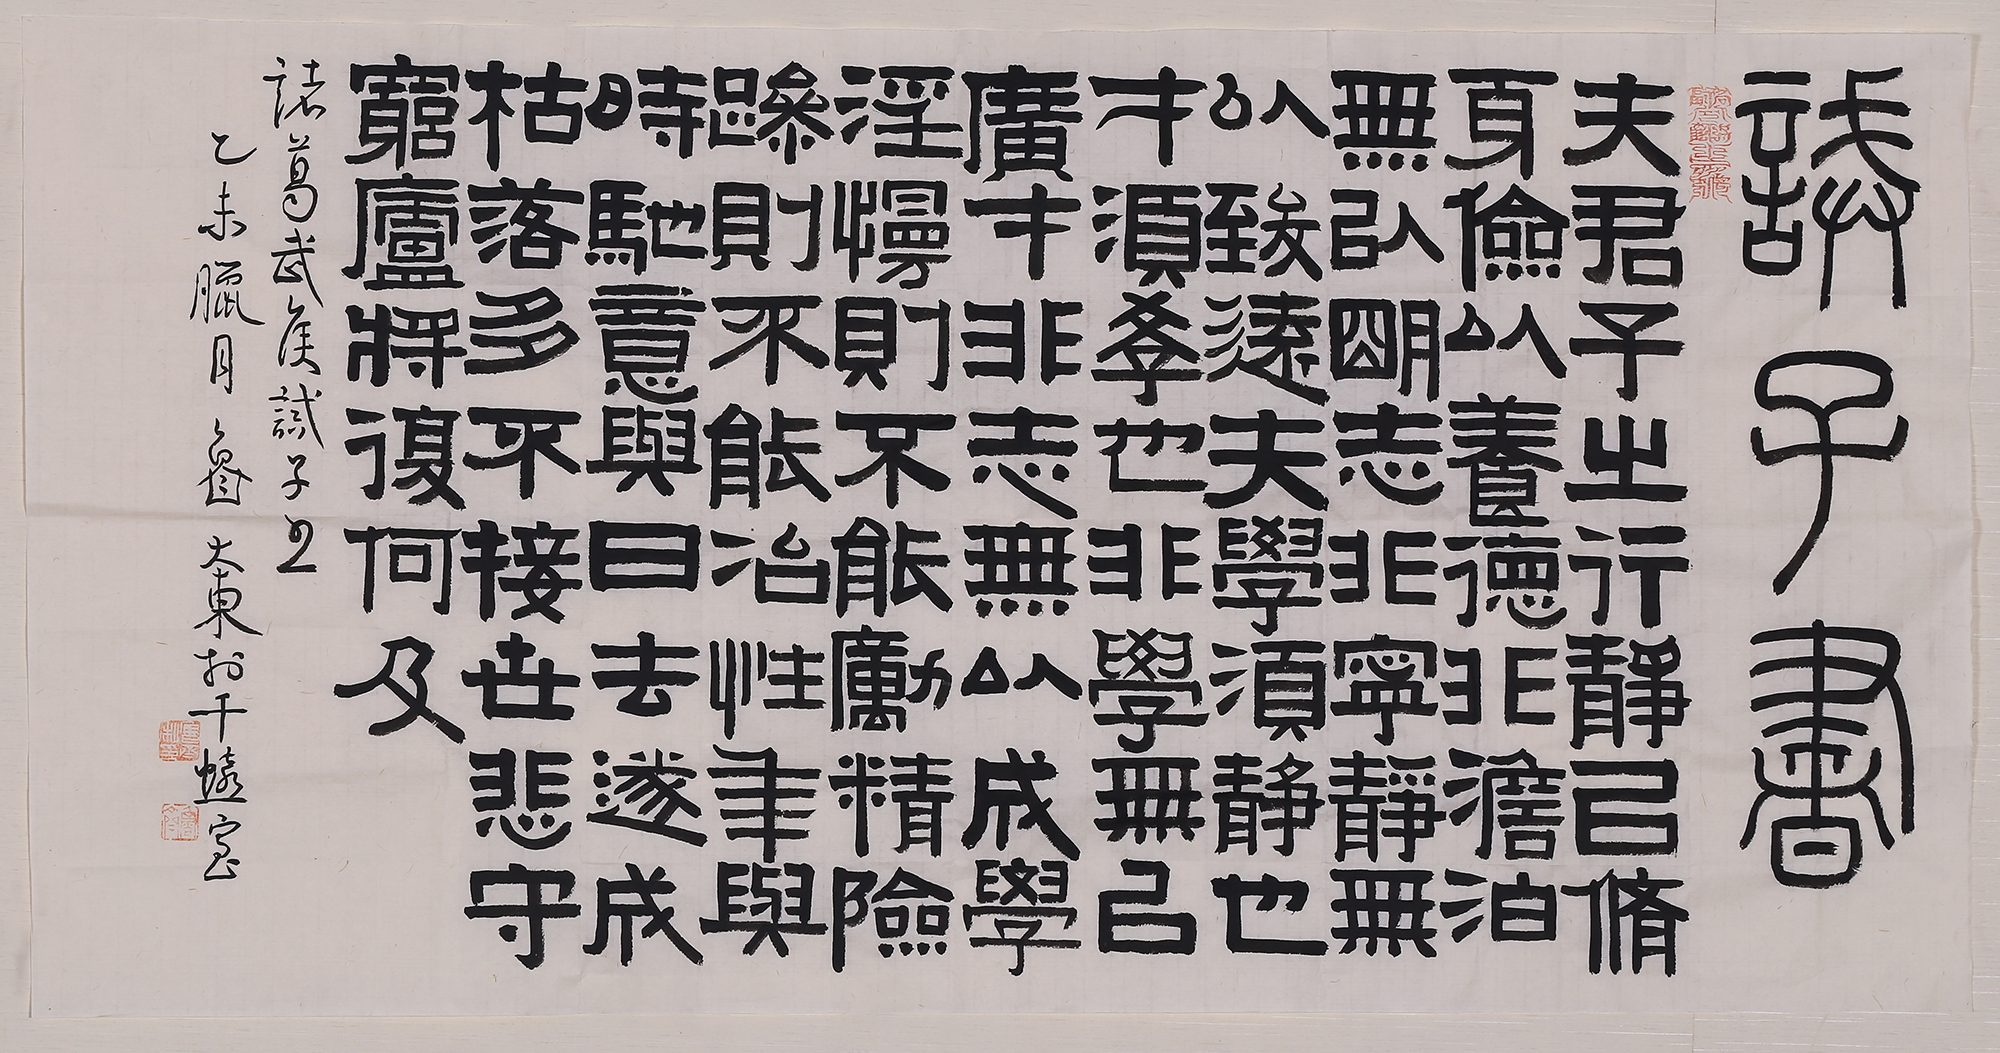 誡子書
夫君子之行靜己脩
身儉以養德非澹泊
無以明志非寧靜無
以致遠夫學須靜也
才須學也非學無己
廣才非志無以成學
淫慢則不能勵精險
躁則不能冶性年與
時馳意與日去遂成
枯落多不接世悲守
窮廬將復何及
諸葛武侯誡子書
乙未臘月魯大東於千甓室